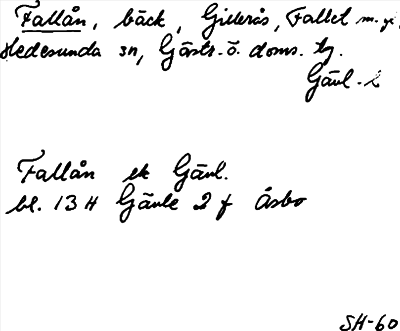 Fallån, bäck, Giderås, Fallet m. gd.
Hedesunda sn, Gästr. ö. doms. tg.
Gävl. l.
Fallån ek Gävl.
bl. 13 H Gävle 2 f Åsbo
SH-60